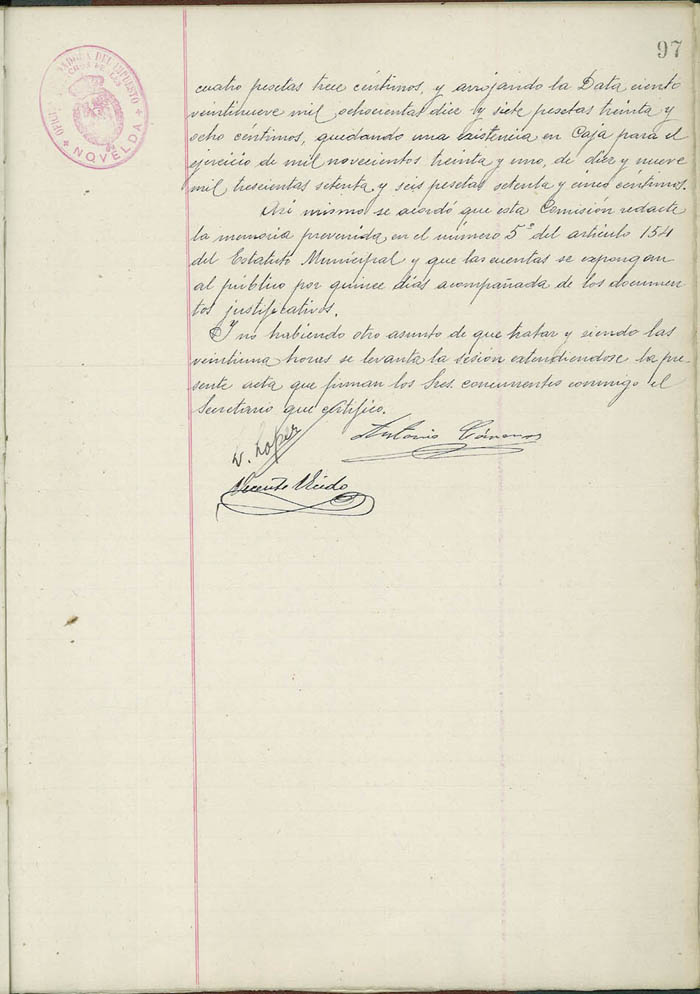 97
NOVELDA
cuatro pesetas trece céntimos, y arrojando la Data ciento
veintinueve mil ochocientas diez y siete pesetas treinta y
ocho céntimos, quedando una existencia en Caja para el
ejercicio de mil novecientos treinta y uno, de diez y nueve
mil trescientas setenta y seis pesetas setenta y cinco céntimos.
Asi mismo se acordó que esta Comisión redacte
la memoria prevenida en el número 5º del artículo 154
del Estatuto Municipal y que las cuentas se expongan
al público por quince días acompañada de los documen
tos justificativos.
Y no habiendo otro asunto de que tratar y siendo las
veintiuna horas se levanta la sesión extendiendose la pre
sente acta que firman los Sres. concurrentes conmigo el
Secretario que certifico.
V. Lopez
Antonio
Vicente